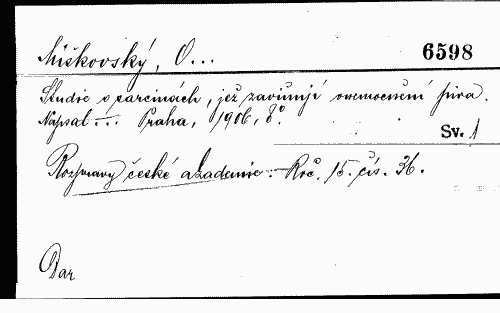 Miškovský, O...
6598
Studie o sarcinách, jež zaviňují onemocnění piva.
Napsal —... Praha, 1906, 8°.
Sv. 1
Rozpravy české akademie. — Roč. 15. čís. 36.
Dar